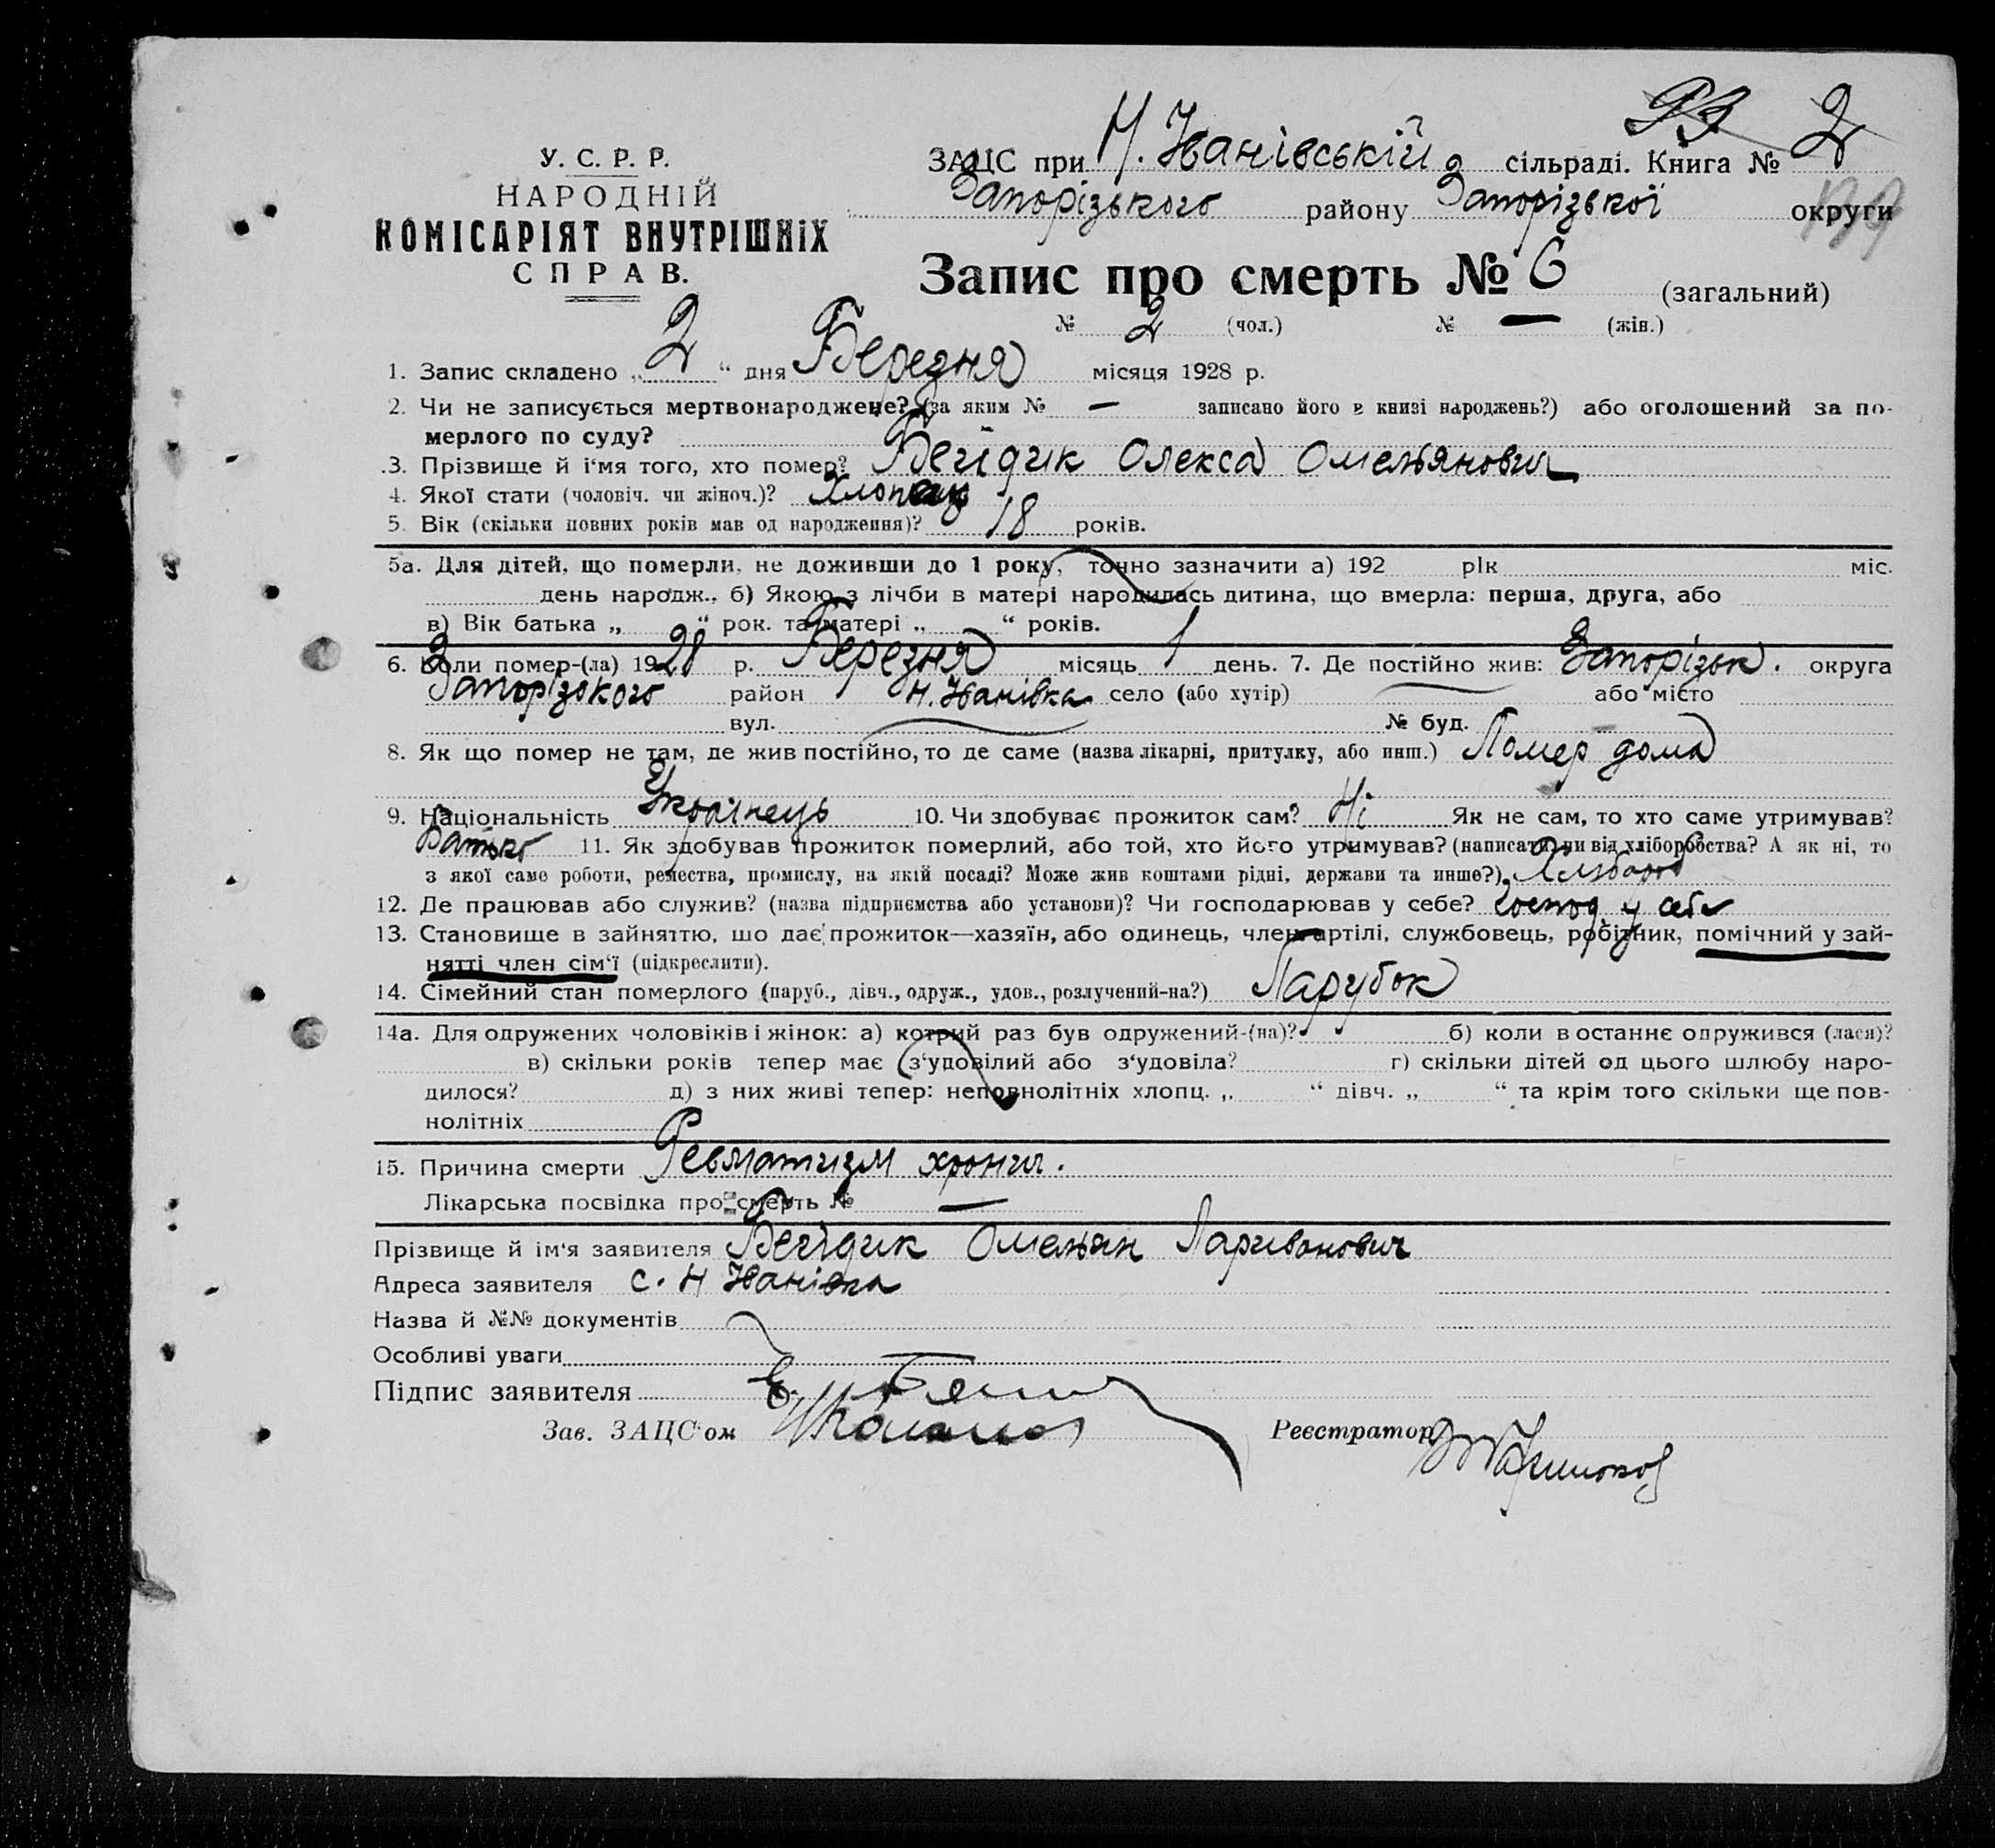 93 2
У. С. Р. Р.
НАРОДНІЙ
КОМІСАРІЯТ ВНУТРІШНІХ
СПРАВ.
ЗАЦС при Н. Іванівській сільраді. Книга №
Запорізького району Запорізької округи
Запис про смерть № 6 (загальний)
№ 2 (чол.) № — (жін.)
1. Запис складено „ 2 “ дня Березня місяця 1928 р.
2. Чи не записується мертвонароджене? (за яким № — записано його в книзі народжень?) або оголошений за по-
мерлого по суду?
3. Прізвище й і'мя того, хто помер? Бегідик Олекса Омельянович
4. Якої статі (чоловіч. чи жіноч.)? Хлопець
5. Вік (скільки повних років мав од народження)? 18 років.
5а. Для дітей, що померли, не доживши до 1 року, точно зазначити а) 192 рік міс.
день народж., б) Якою з лічби в матері народилась дитина, що вмерла: перша, друга, або
в) Вік батька „ “ рок. та матері „ “ років.
6. Коли помер-(ла) 1928 р. Березня місяць 1 день. 7. Де постійно жив: Запорізьк. округа
Запорізького район Н. Іванівка село (або хутір) або місто
вул. № буд.
8. Як що помер не там, де жив постійно, то де саме (назва лікарні, притулку, або инш.) Помер дома
9. Національність Українець 10. Чи здобуває прожиток сам? Ні Як не сам, то хто саме утримував?
Батько 11. Як здобував прожиток померлий, або той, хто його утримував? (написати чи від хліборобства? А як ні, то
з якої саме роботи, ремества, промислу, на якій посаді? Може жив коштами рідні, держави та инше?)
12. Де працював або служив? (назва підприємства або установи)? Чи господарював у себе? Господ. у себе
13. Становище в зайняттю, шо дає прожиток—хазяїн, або одинець, член артілі, службовець, робітник, помічний у зай-
нятті член сім'ї (підкреслити).
14. Сімейний стан померлого (паруб., дівч., одруж., удов., розлучений-на?) Парубок
14а. Для одружених чоловіків і жінок: а) котрий раз був одружений-(на)? б) коли в останнє одружився (лася)?
в) скільки років тепер має з'удовілий або з'удовіла? г) скільки дітей од цього шлюбу наро-
дилося? д) з них живі тепер: неповнолітніх хлопц. „ “ дівч. „ “ та крім того скільки ще пов-
нолітніх
15. Причина смерти Ревматизм хронич.
Лікарська посвідка про смерть № —
Прізвище й ім'я заявителя Бегідик Омельян Ларивонович
Адреса заявителя с. Н Іванівка
Назва й №№ документів
Особливі уваги
Підпис заявителя
Зав. ЗАЦС'ом Реєстратор